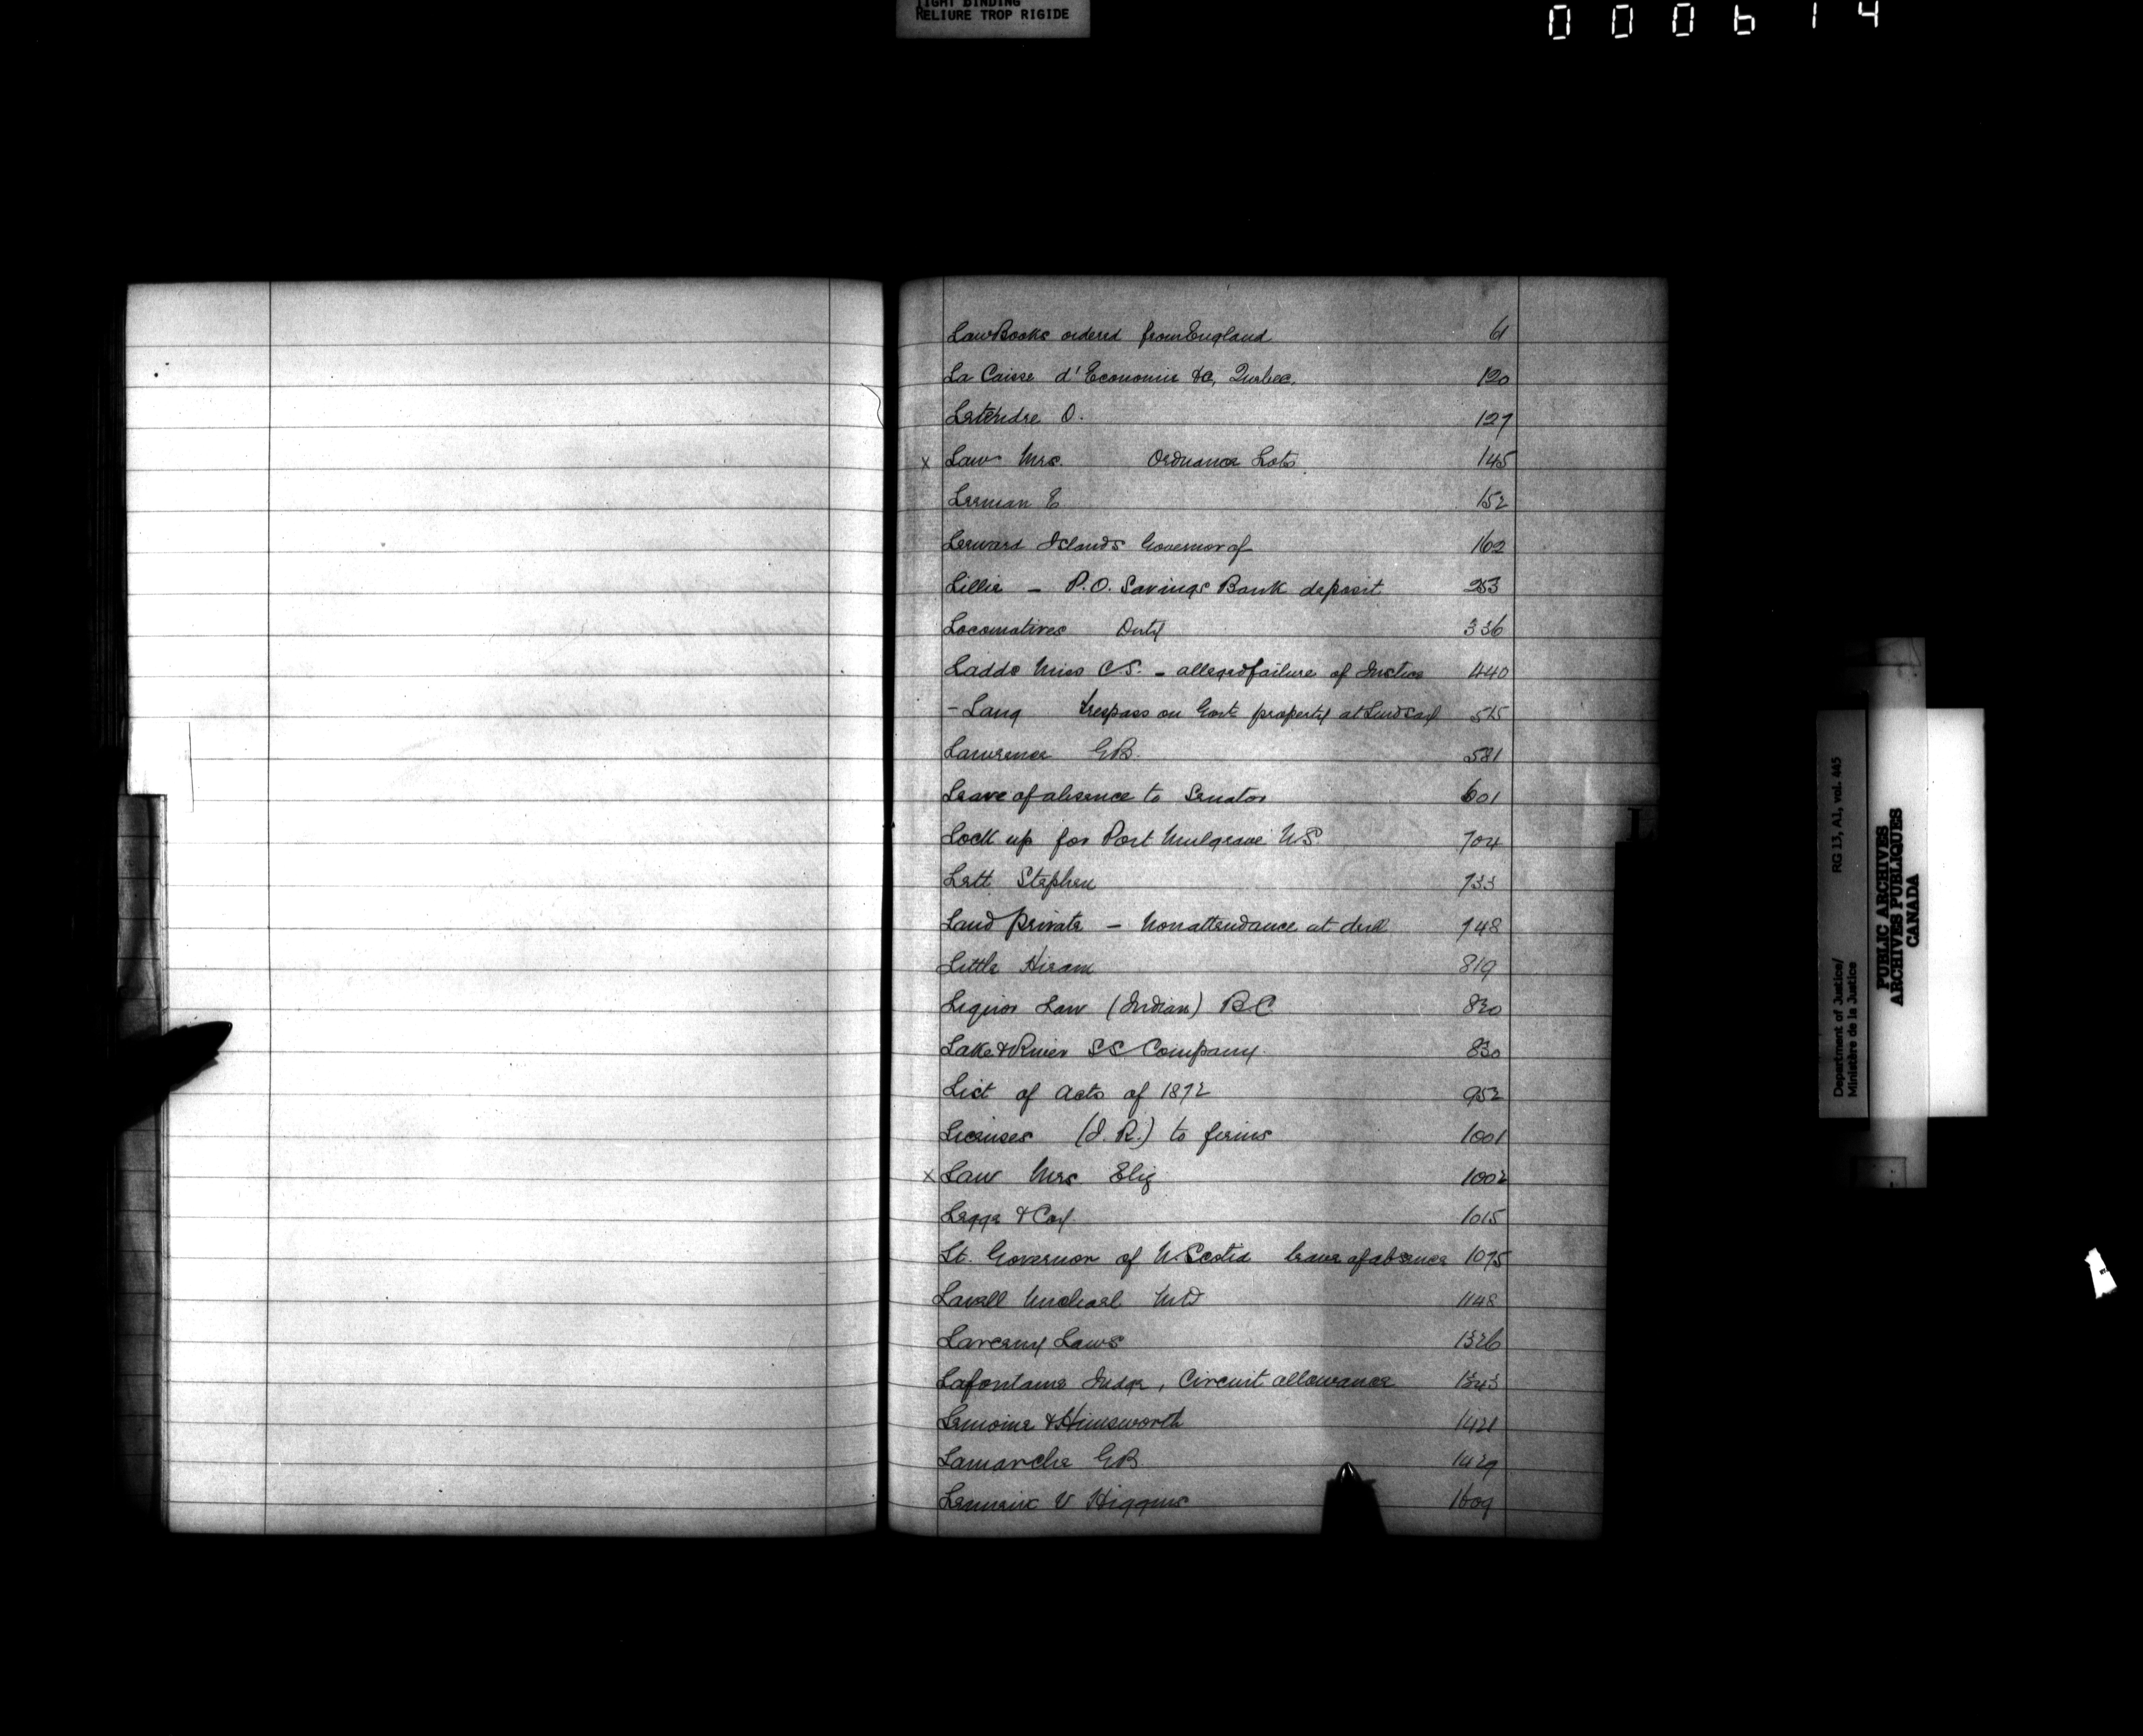 TIGHT BINDING
RELIURE TROP RIGIDE
000614
Law Books ordered from England 61
La Caisse d'Economie &c, Quebec. 120
Letendre O. 127
x Law Mrs. Ordnance Lots. 145
Leeman E 152
Leeward Islands Governor of 162
Lillie - P.O. Savings Bank deposit 253
Locomotives Duty 336
Ladds Miss C.S. - alleged failure of Justice 440
- Lang trespass on Govt property at Lindsay 515
Lawrence G.B. 581
Leave of absence to Senator 601
Lock up for Port Mulgrave NS 704
Lett Stephen 733
Land private - Nonattendance at drill 748
Little Hiram 819
Liquor Law (Indian) BC 820
Lake & River SS Company. 830
List of Acts of 1872 952
Licenses (I.R.) to firms 1001
x Law Mrs. Eliz 1002
Legge & Coy 1015
Lt. Governor of N. Scotia leave of absence 1075
Lavell Michael MD 1148
Larceny Laws 1326
Lafontaine Judge, Circuit allowance 1343
Lemoine & Himsworth 1421
Lamarche GB 1429
V Higgins 1609
L
Department of Justice/ RG 13, A1, vol. 445
Ministère de la Justice
PUBLIC ARCHIVES
ARCHIVES PUBLIQUES
CANADA